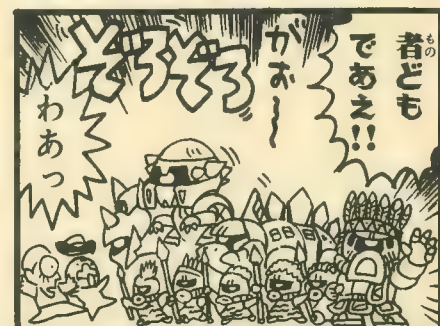 者ども
もの
であえ!!
がお～
ぞろぞろ
わあっ